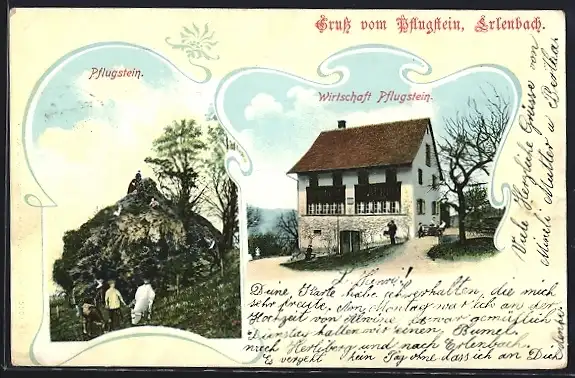 Gruß vom Pflugstein, Erlenbach.
Pflugstein.
Wirtschaft Pflugstein.
L. Henri!
Deine Karte habe ich erhalten, die mich
sehr freute. Am Montag war ich an der
Hochzeit von Hewine. Es war gemütlich
Dienstag hatten wir einen Bumel
nach Herliberg und nach Erlenbach.
Es vergeht kein Tag ohne dass ich an Dich
denke
Viele Herzliche Grüsse von
Mineli Mutter u Bertha.